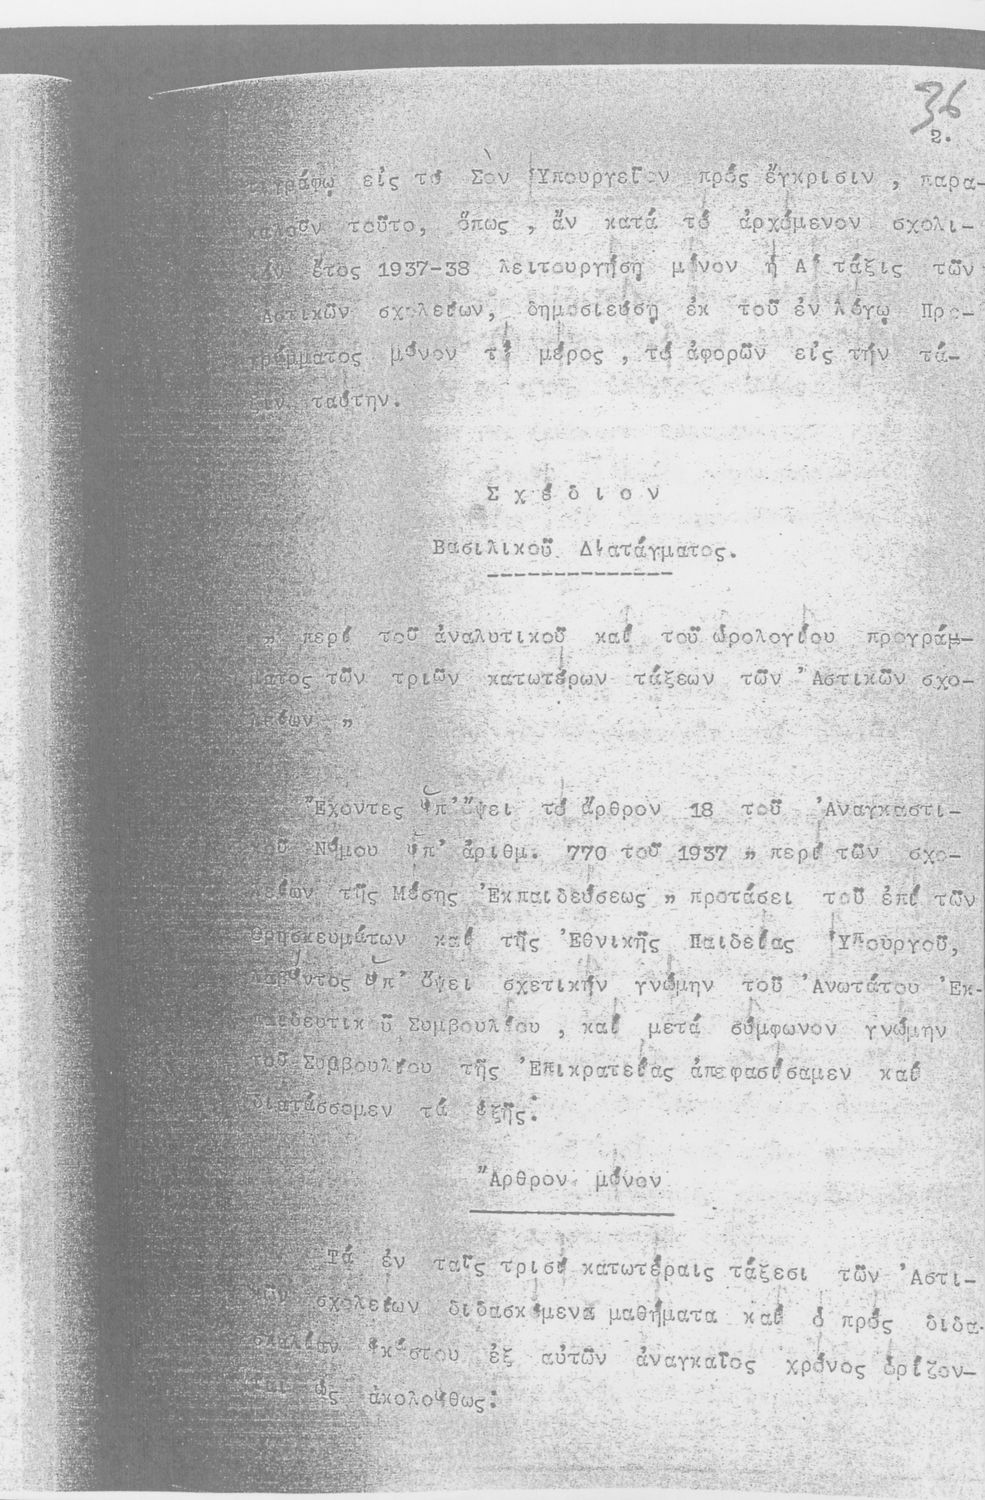 36
2.
εἰς τό Σόν Ὑπουργεῖον πρός ἔγκρισιν , παρα-
καλοῦν τοῦτο, ὅπως , ἄν κατά τό ἀρχόμενον σχολι-
ἔτος 1937-38 λειτουργήσῃ μόνον ἡ Α΄ τάξις τῶν
Ἀστικῶν σχολείων, δημοσιεύσῃ ἐκ τοῦ ἐν λόγῳ Προ-
γράμματος μόνον τό μέρος , τό ἀφορῶν εἰς τήν τά-
ξιν ταύτην.
Σ χ έ δ ι ο ν
Βασιλικοῦ Διατάγματος.
" περί τοῦ ἀναλυτικοῦ καί τοῦ ὡρολογίου προγράμ-
ματος τῶν τριῶν κατωτέρων τάξεων τῶν Ἀστικῶν σχο-
λείων "
Ἔχοντες ὑπ' ὄψει τό ἄρθρον 18 τοῦ Ἀναγκαστι-
κοῦ Νόμου ὑπ' ἀριθμ. 770 τοῦ 1937 " περί τῶν σχο-
λείων τῆς Μέσης Ἐκπαιδεύσεως " προτάσει τοῦ ἐπί τῶν
Θρησκευμάτων καί τῆς Ἐθνικῆς Παιδείας Ὑπουργοῦ,
λαβόντος ὑπ' ὄψει σχετικήν γνώμην τοῦ Ἀνωτάτου Ἐκ-
παιδευτικοῦ Συμβουλίου , καί μετά σύμφωνον γνώμην
τοῦ Συμβουλίου τῆς Ἐπικρατείας ἀπεφασίσαμεν καί
διατάσσομεν τά ἑξῆς:
Ἄρθρον μόνον
Τά ἐν ταῖς τρισί κατωτέραις τάξεσι τῶν Ἀστι-
κῶν σχολείων διδασκόμενα μαθήματα καί ὁ πρός διδα-
σκαλίαν ἑκάστου ἐξ αὐτῶν ἀναγκαῖος χρόνος ὁρίζον-
ται ὡς ἀκολούθως: